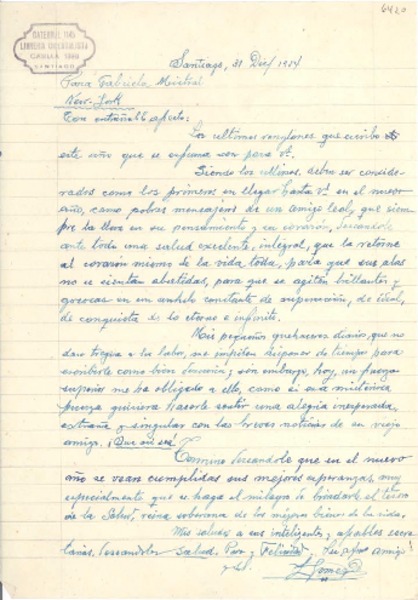 6420
CATEDRAL 1145
CASILLA
SANTIAGO
Santiago, 31 Dic/ 1954
Para Gabriela Mistral
New-York
Con entrañable afecto:
Los ultimos renglones que escribo
este año que se esfuma son para Vd.
Siendo los ultimos, deben ser conside-
rados como los primeros en llegar hasta Vd en el nuevo
año, como pobres mensajeros de un amigo leal, que siem-
pre la lleva en su pensamiento y en corazón, deseandole
ante todo una salud excelente, integral, que la retorne
al corazón mismo de la vida toda, para que sus alas
no se sientan abatidas, para que se agiten brillantes y
gozosas en un anhelo constante de superación, de ideal,
de conquista de lo eterno e infinito.
Mis pequeños quehaceres diarios, que no
dan tregua a la labor, me impiden disponer de tiempo para
escribirle como bien desearia; sin embargo, hoy, un fuerza
superior me ha obligado a ello, como si esa misteriosa
fuerza quisiera hacerle sentir una alegria inesperada,
extraña y singular con las breves noticias de un viejo
amigo. ¡Que asi sea!
Termino deseandole que en el nuevo
año se vean cumplidas sus mejores esperanzas, muy
especialmente que se haga el milagro de brindarle el tesoro
de la Salud, reina soberana de los mejores bienes de la vida.
Mis saludos a sus inteligentes y apables secre-
tarias, deseandoles Salud, Paz y Felicidad. Su afmo amigo
y S.S.
L Gomez